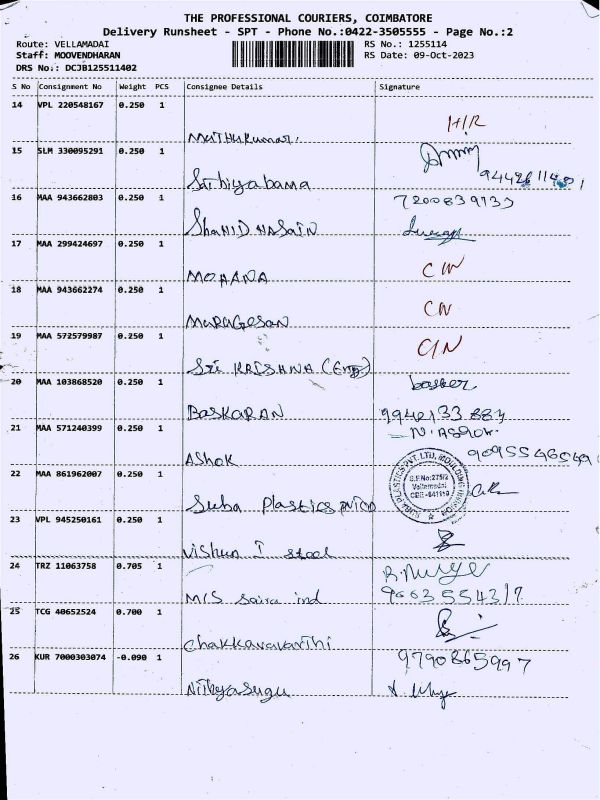 THE PROFESSIONAL COURIERS, COIMBATORE
Delivery Runsheet - SPT - Phone No.:0422-3505555 - Page No.:2
Route: VELLAMADAI RS No.: 1255114
Staff: MOOVENDHARAN RS Date: 09-Oct-2023
DRS No.: DCJB125511402
S No Consignment No Weight PCS Consignee Details Signature
14 VPL 220548167 0.250 1
H/R
Muthukumar.
15 SLM 330095291 0.250 1
Sathiyabama
16 MAA 943662803 0.250 1 7200839133
SHAHID HASAIN
17 MAA 299424697 0.250 1
C/N
MOHANA
18 MAA 943662274 0.250 1
C/N
MURUGESAN
19 MAA 572579987 0.250 1 C/N
Sri KRISHNA (Eng)
20 MAA 103868520 0.250 1 basker
BASKARAN
21 MAA 571240399 0.250 1 N. Ashok.
ASHOK 9095546549
22 MAA 861962007 0.250 1
SUBA PLASTICS PVT. LTD., MOULDING DIVISION
S.F.No:275/2
Vellamadai
CBE-641110
Suba Plastics pvt LTD
23 VPL 945250161 0.250 1
Vishnu I steel
24 TRZ 11063758 0.705 1
M/S Saira ind
25 TCG 40652524 0.700 1
Chakkaravarthi
26 KUR 7000303074 -0.090 1 9790865997
Nithyasugu